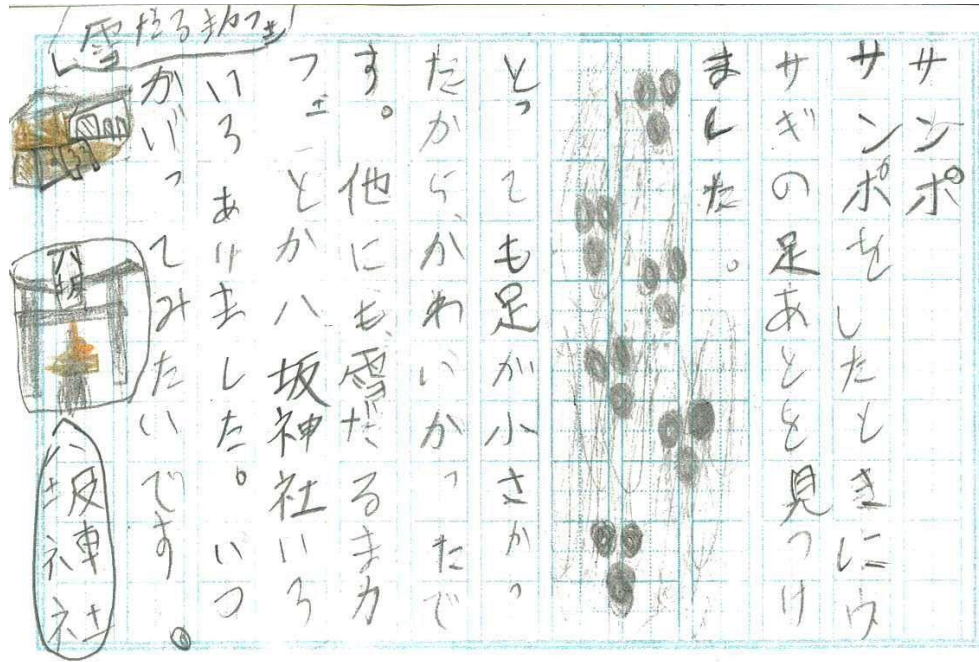 サンポ
サンポをしたときにウ
サギの足あとを見つけ
ました。
とっても足が小さかっ
たから、かわいかったで
す。他にも、雪だるまカ
フェとか八坂神社いろ
いろありました。いつ
かいってみたいです。
雪だるまカフェ
八坂神社